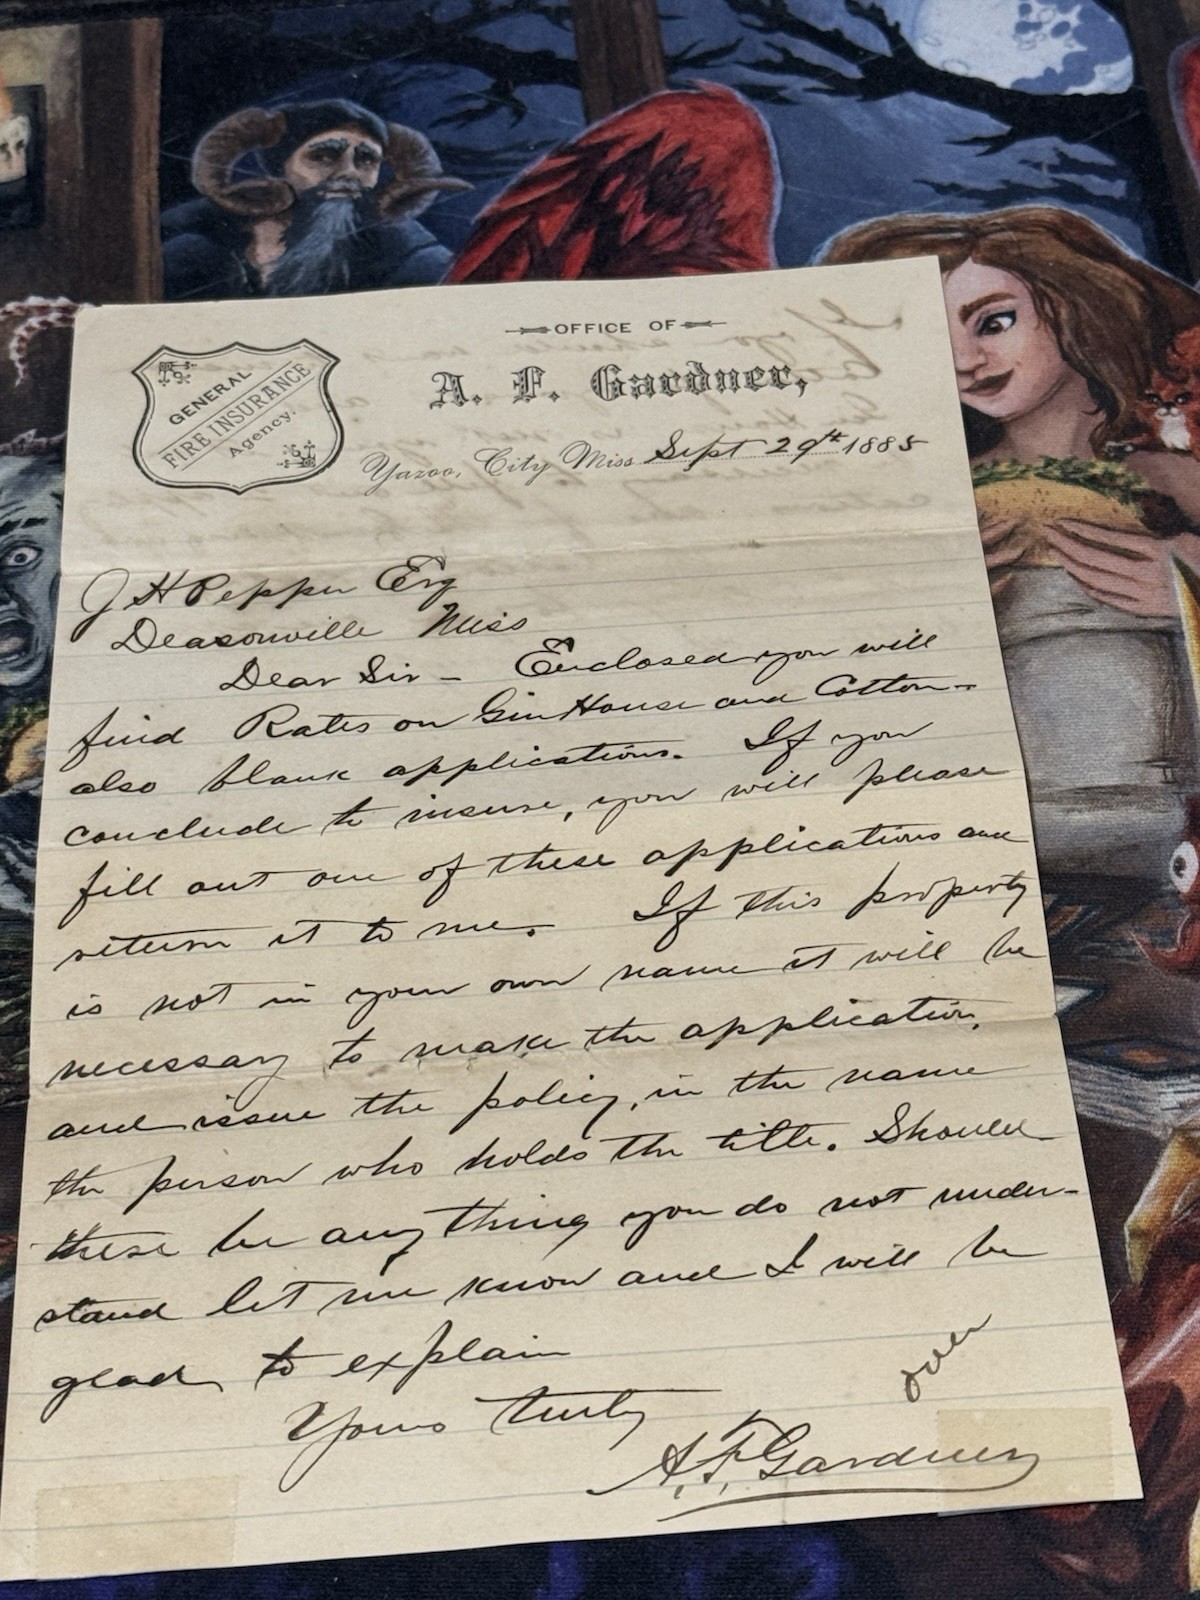 GENERAL
FIRE INSURANCE
Agency.
OFFICE OF
A. F. Gardner,
Yazoo, City Miss Sept 29th 1885
J H Pepper Esq
Deasonville Miss
Dear Sir - Enclosed you will
find Rates on Gin House and Cotton -
also blank applications. If you
conclude to insure, you will please
fill out one of these applications and
return it to me. If this property
is not in your own name it will be
necessary to make the application,
and issue the policy, in the name
the person who holds the title. Should
there be any thing you do not under-
stand let me know and I will be
glad to explain
Yours truly
A. F. Gardner
over